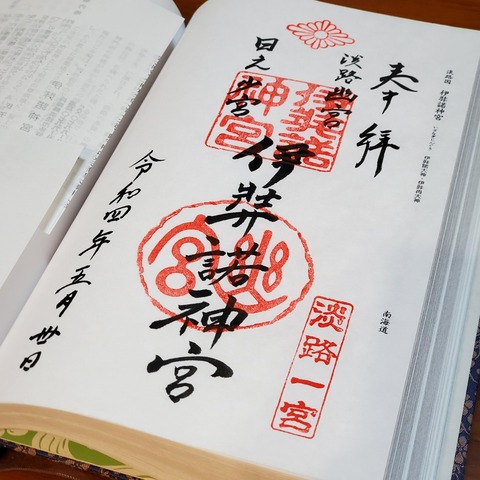 淡路国 伊弉諾神宮
伊弉諾大神・伊弉冉大神
南海道
奉拝
淡路一宮
淡路幽宮
日之少宮
伊弉諾
神宮
伊弉諾神宮
令和四年五月卅日